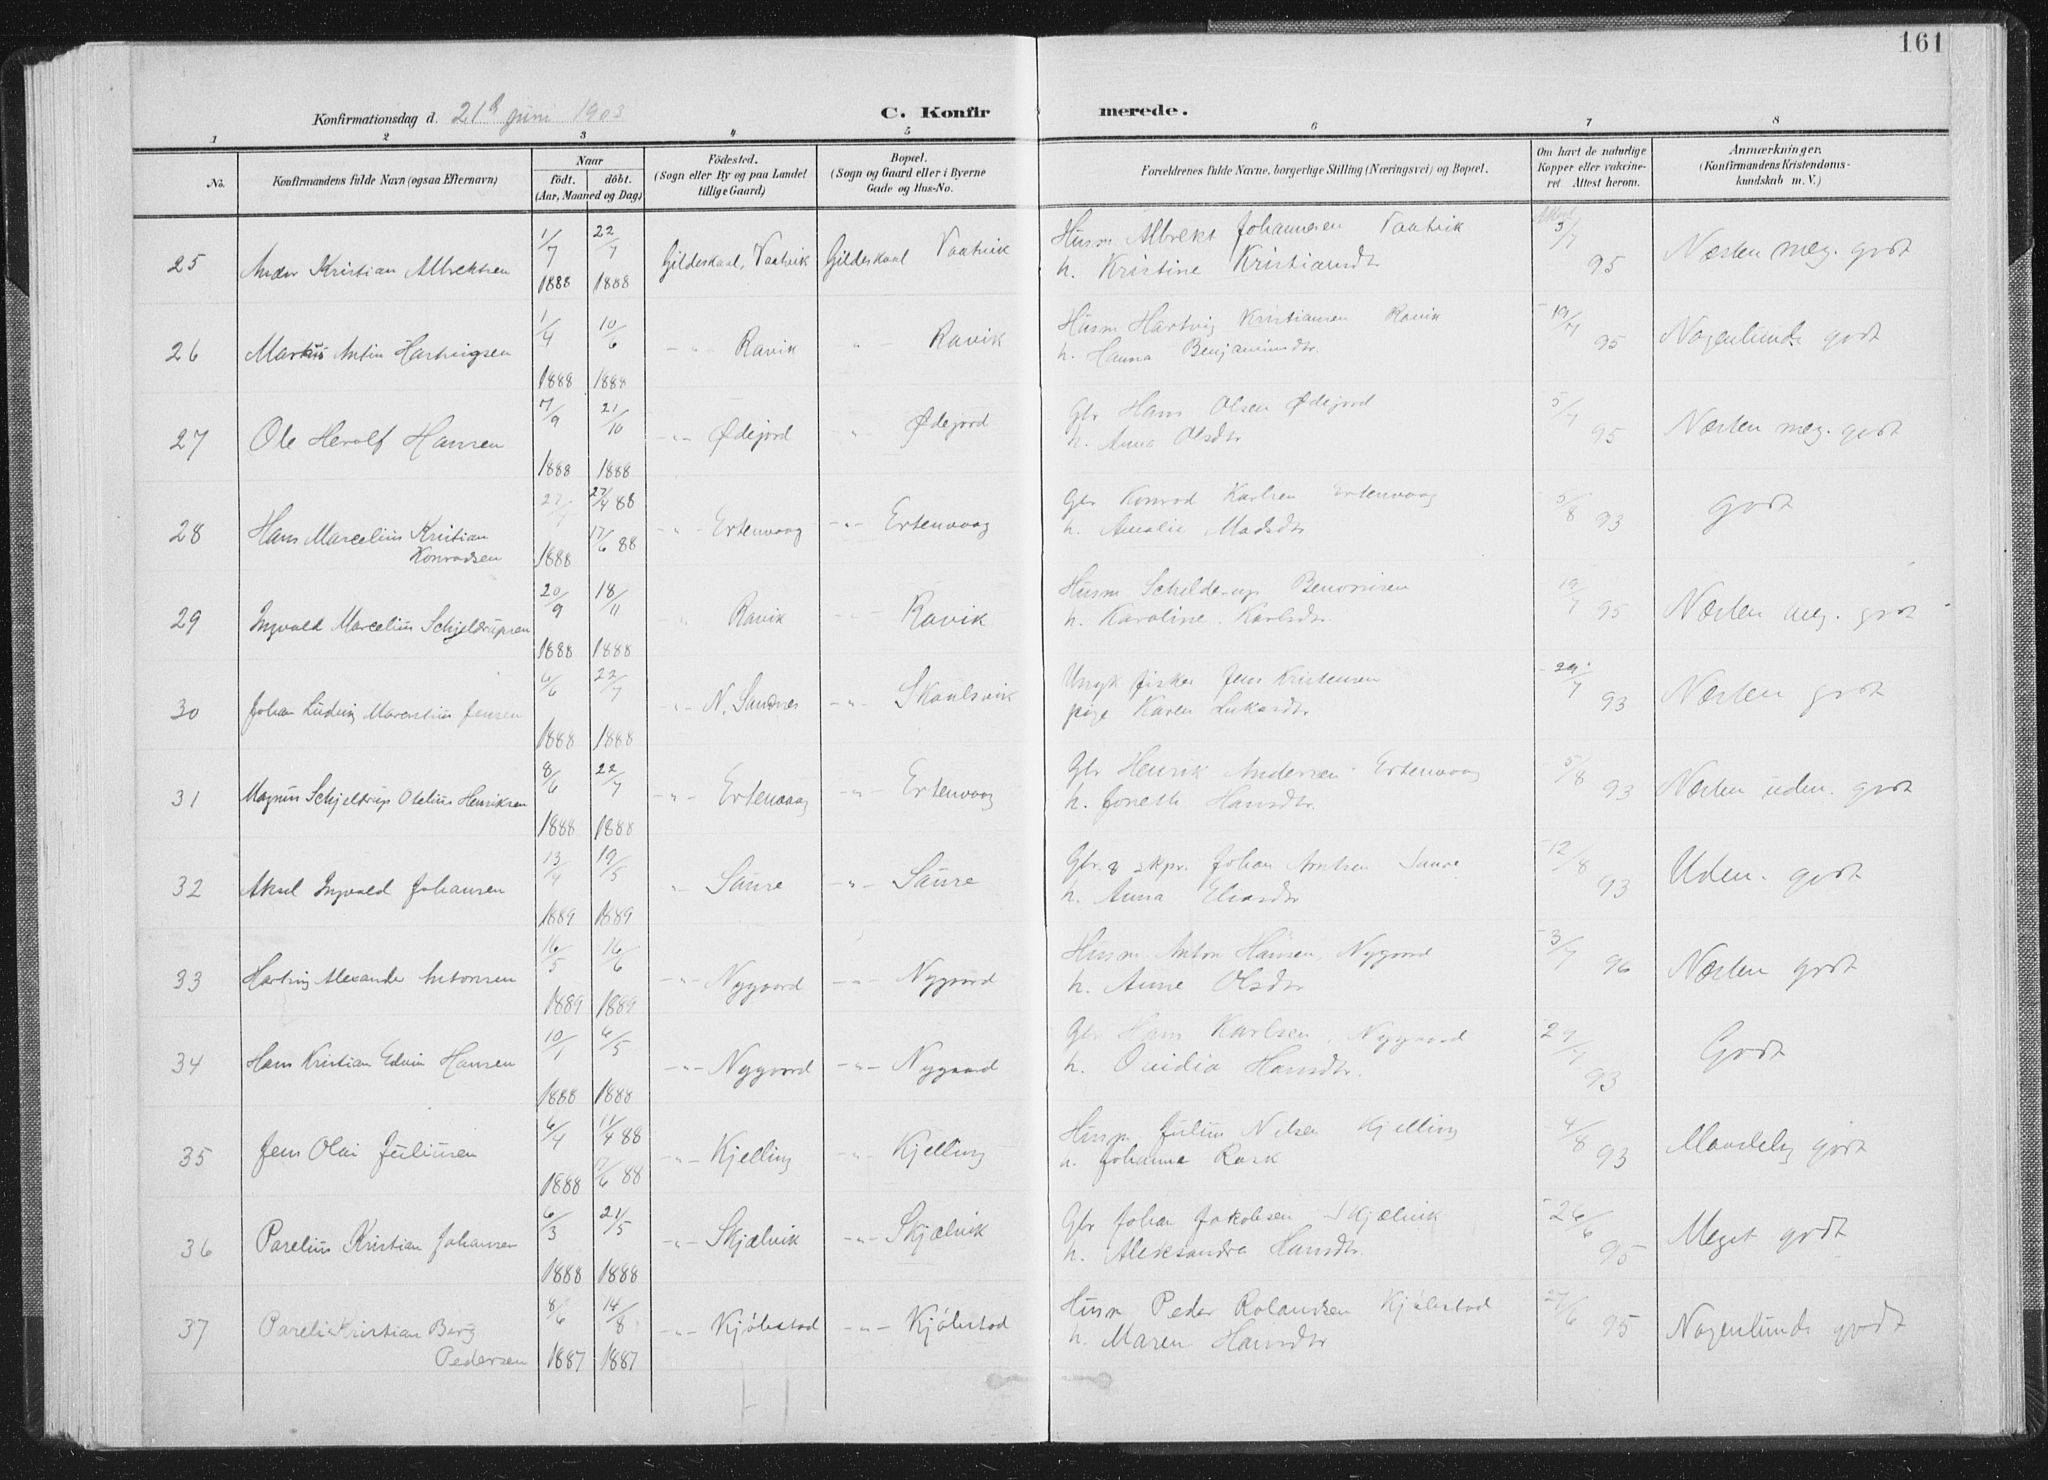 161
Konfirmationsdag d. 21d juni 1903
C. Konfirmerede.
1 2 3 4 5 6 7 8
No.
Konfirmandens fulde Navn (ogsaa Efternavn)
Naar
födt. döbt.
(Aar, Maaned og Dag)
Födested.
(Sogn eller By og paa Landet
tillige Gaard)
Bopæl.
(Sogn og Gaard eller i Byerne
Gade og Hus-No.
Forældrenes fulde Navne, borgerlige Stilling (Næringsvei) og Bopæl.
Om havt de naturlige
Kopper eller vakcine-
ret Attest herom.
Anmærkninger.
(Konfirmandens Kristendoms-
kundskab m. V.)
25 Ander Kristian Albrektsen 1/7 1888 22/7 1888 Gildeskaal, Vaatvik Gildeskaal Vaatvik
Husm Albrekt Johannesen Vaatvik
h. Kristine Kristiansdtr
3/7 95 Næsten meg. godt
26 Markus Antin Hartvigsen 1/4 1888 10/6 1888 -"- Ravik " Ravik
Husm Hartvig Kristiansen Ravik
h. Hanna Benjaminsdtr.
19/7 95 Nogenlunde godt
27 Ole Herolf Hansen 7/9 1888 21/10 1888 -"- Ødejord " Ødejord
Gbr Hans Olsen Ødejord
h. Anna Olsdtr
5/7 95 Næsten meg. godt
28 Hans Marcelius Kristian
Konradsen 1888 27/4 88 17/6 88 -"- Ertenvaag -"- Ertenvaag
Gbr Konrad Karlsen Ertenvaag
h. Amalie Madsdtr
5/8 93 godt
29 Ingvald Marcelius Schjeldrupsen 20/9 1888 18/11 1888 " Ravik -"- Ravik
Husm Schelderup Benonisen
h. Karoline Karlsdtr.
19/7 95 Næsten meg. godt
30 Johan Ludvig Marentius Jensen 6/6 1888 22/7 1888 -"- N. Sandnes -"- Skaulsvik
Ungk fisker Jens Kristensen
pige Karen Lukasdtr
29/7 93 Næsten godt
31 Magnus Schjeldrup Otelius Henriksen 8/6 1888 22/7 1888 -"- Ertenvaag -"- Ertenvaag
Gbr Henrik Andersen Ertenvaag
h. Joneth Hansdtr.
5/8 93 Næsten uden. godt
32 Aksel Ingvald Johansen 13/4 1889 19/5 1889 -"- Saure -"- Saure
Gbr. & skpr. Johan Arntsen Saure
h. Anna Eliasdtr
12/8 93 Uden. godt
33 Hartvig Alexander Antonsen 16/5 1889 16/6 1889 -"- Nygaard -"- Nygaard
Husm Anton Hansen, Nygaard
h. Anne Olsdtr
3/7 96 Næsten godt
34 Hans Kristian Edvin Hansen 10/1 1888 6/5 1888 -"- Nygaard -"- Nygaard
Gbr Hans Karlsen, Nygaard
h. Ovidia Hansdtr.
29/7 93 Godt
35 Jens Olai Juliusen 6/4 1888 11/4 88 17/6 88 -"- Kjelling -"- Kjelling
Husm Julius Nilsen Kjelling
h. Johanna Rask
4/8 93 Maadelig godt
36 Parelius Kristian Johansen 6/3 1888 21/5 1888 -"- Skjælvik -"- Skjælvik
Gbr Johan Jakobsen Skjælvik
h. Aleksandra Hansdtr.
26/6 95 Meget godt
37 Pareli Kristian Berg
Pedersen 8/6 1887 14/8 1887 -"- Kjøbstad -"- Kjøbstad
Husm Peder Rolandsen Kjøbstad
h. Maren Hansdtr
27/6 95 Nogenlunde godt